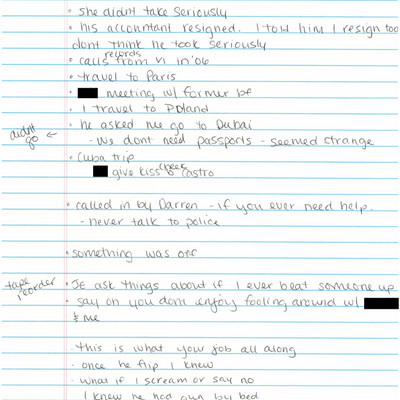 • she didnt take seriously
• his accountant resigned. I told him I resign too
dont think he took seriously
records
• calls from VI in '06
• travel to Paris
• meeting w/ former bf
• I travel to Poland
didnt go ← • he asked me go to Dubai
- we dont need passports - seemed strange
• Cuba trip
give kiss cheek to Castro
• called in by Darren - if you ever need help.
- never talk to police
• something was off
tape recorder → • JE ask things about if I ever beat someone up
• say on you dont enjoy fooling around w/
& me
- this is what your job all along
- once he flip I knew
- what if I scream or say no
I knew he had gun by bed